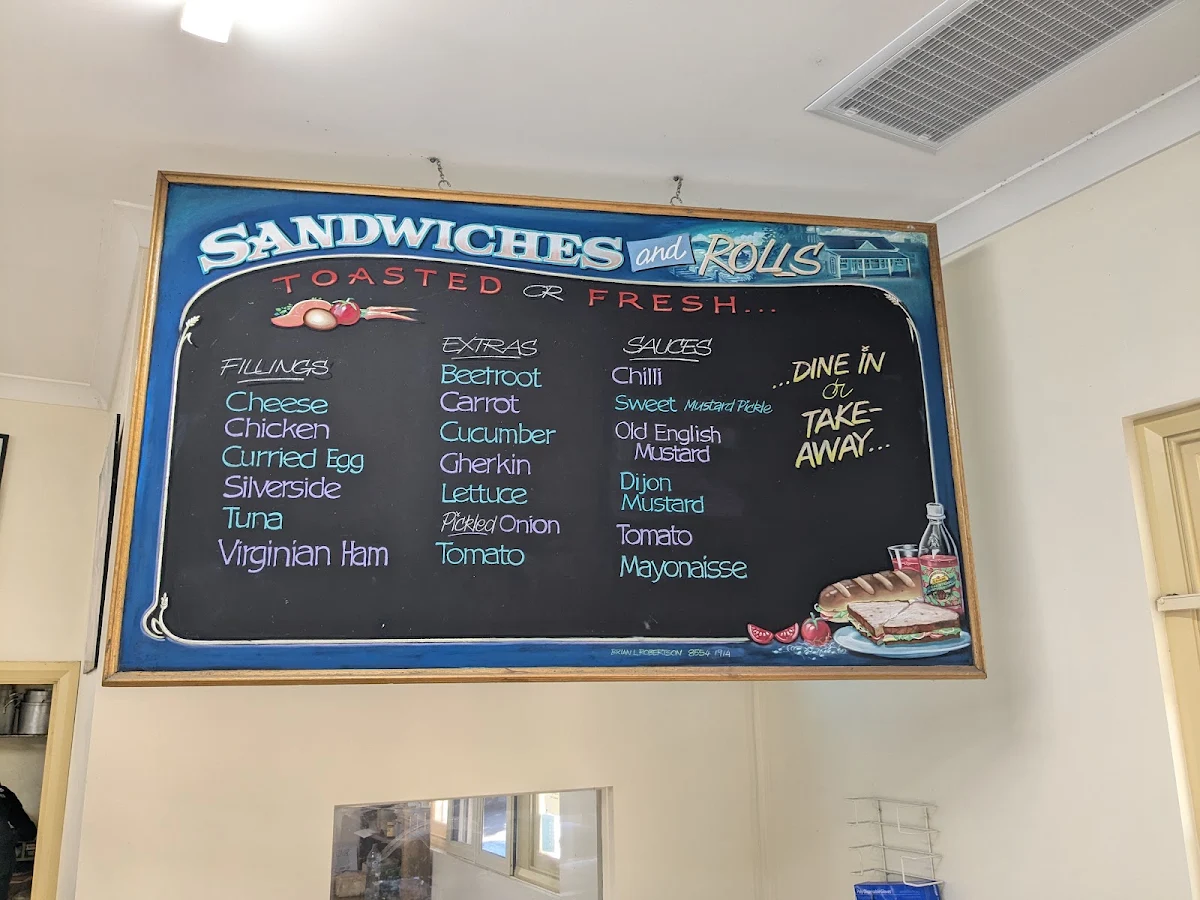 SANDWICHES and ROLLS
TOASTED OR FRESH...
FILLINGS
Cheese
Chicken
Curried Egg
Silverside
Tuna
Virginian Ham
EXTRAS
Beetroot
Carrot
Cucumber
Gherkin
Lettuce
Pickled Onion
Tomato
SAUCES
Chilli
Sweet Mustard Pickle
Old English
Mustard
Dijon
Mustard
Tomato
Mayonaisse
...DINE IN
or
TAKE-
AWAY...
BRIAN L. ROBERTSON 8554 1914